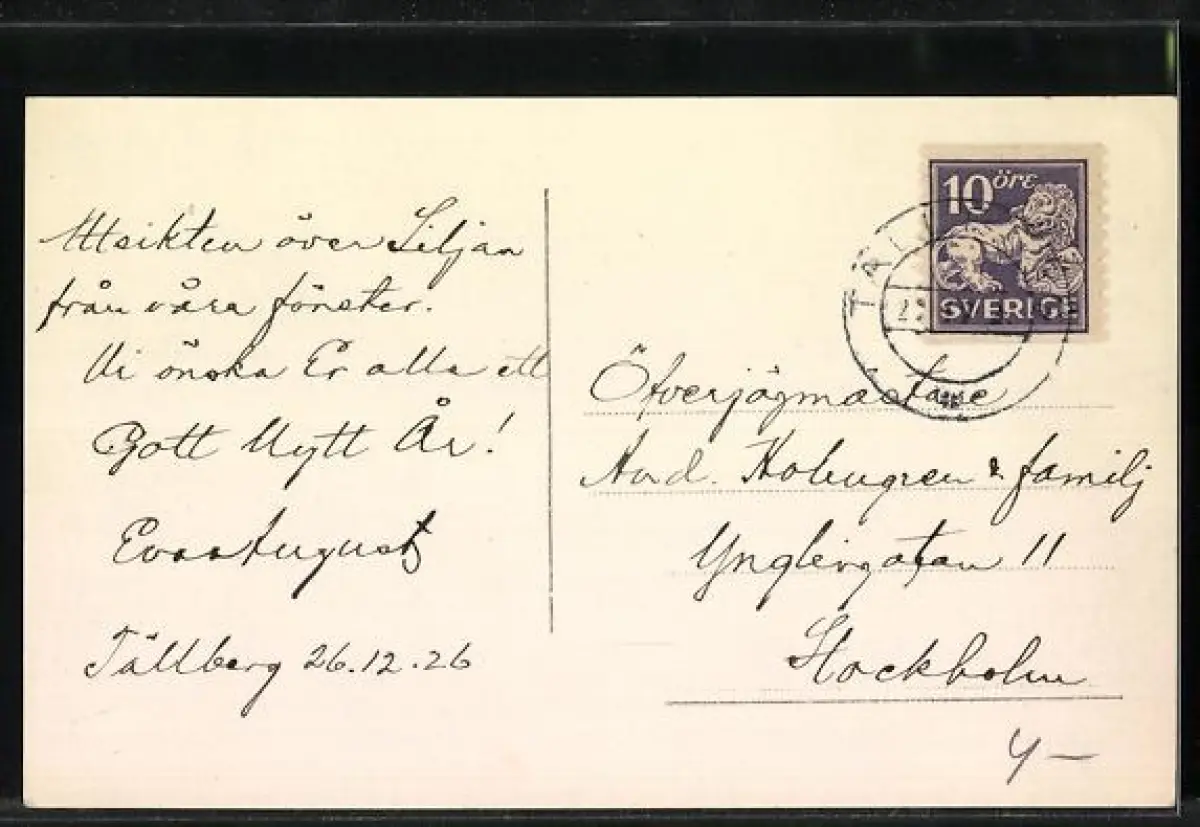 Utsikten över Siljan
från våra fönster.
Vi önska Er alla ett
Gott Nytt År!
Eva o August
Tällberg 26.12.26
10 öre
SVERIGE
TÄL
Öfverjägmästare
And. Holmgren & familj
Ynglingatan 11
Stockholm
4 —